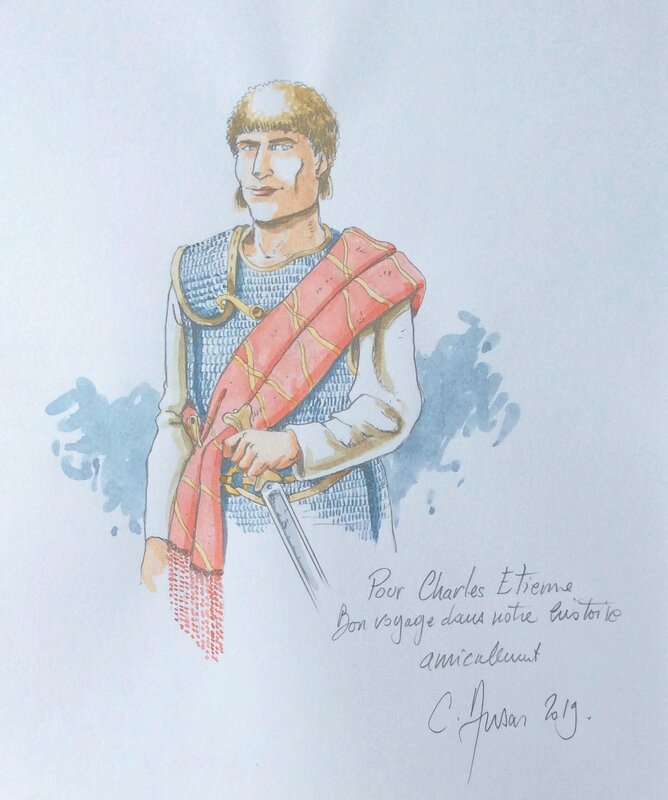 Pour Charles Etienne
Bon voyage dans notre histoire
amicalement
C. Ansar 2019.